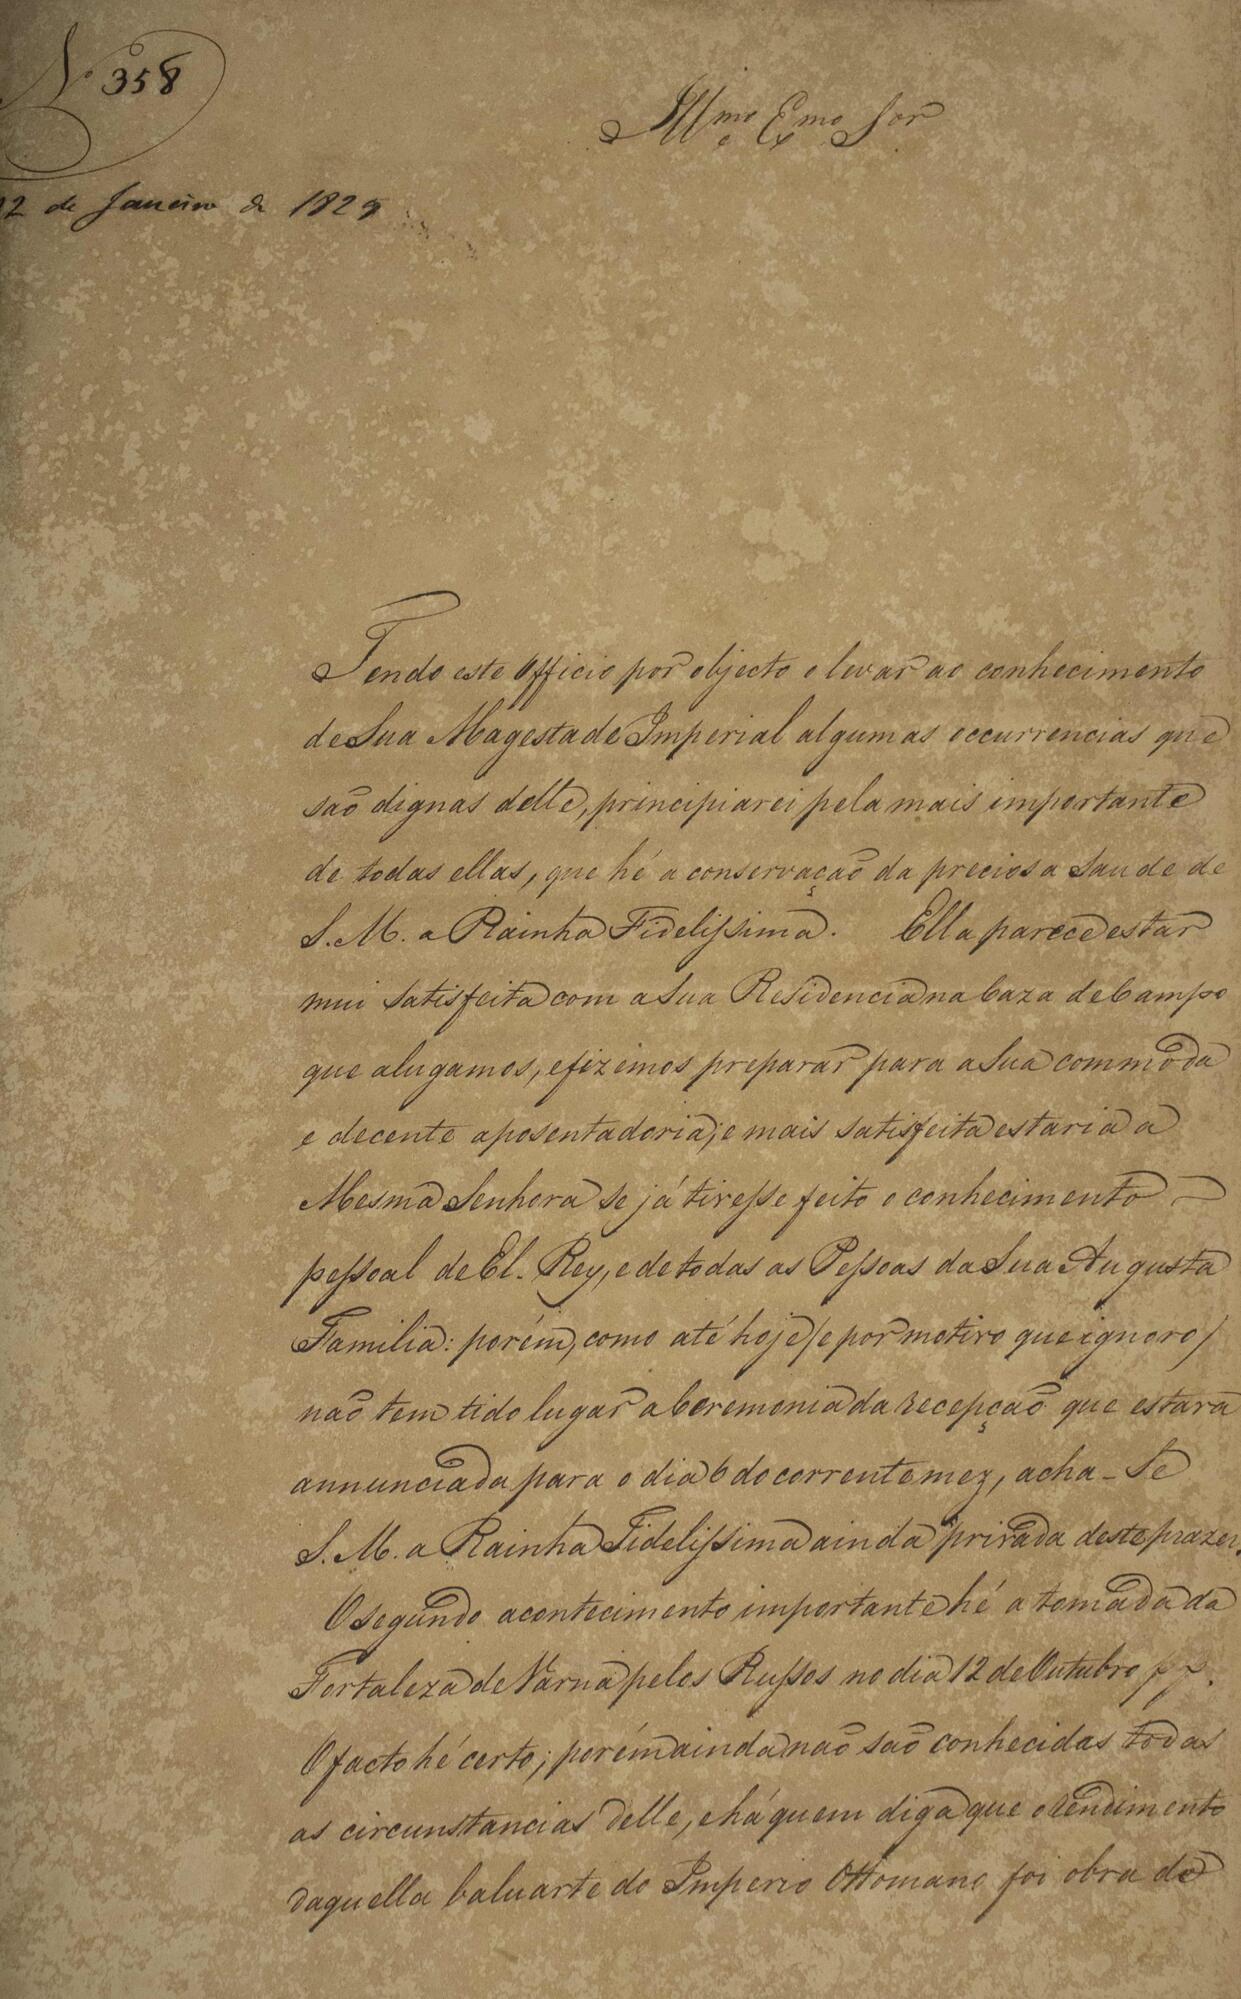 N.º 358
Illmo e Exmo Sor
12 de Janeiro de 1829
Tendo este Officio por objecto o levar ao conhecimento
de Sua Magestade Imperial algumas occurrencias que
saõ dignas delle, principiarei pela mais importante
de todas ellas, que hé a conservaçaõ da preciosa saude de
S. M. a Rainha Fidelissima. Ella parece estar
mui satisfeita com a Sua Residencia na Caza de Campo
que alugamos, e fizemos preparar para a Sua commoda
e decente aposentadoria; e mais satisfeita estaria a
Mesma Senhora se já tivesse feito o conhecimento
pessoal de El-Rey, e de todas as Pessoas da Sua Augusta
Familia: porém, como até hoje (e por motivo que ignoro)
naõ tem tido lugar a Ceremonia da recepçaõ que estava
annunciada para o dia 6 do corrente mez, acha-se
S. M. a Rainha Fidelissima ainda privada deste prazer.
O segundo acontecimento importante hé a tomada da
Fortaleza de Varna pelos Russos no dia 12 de Outubro p. p.
O facto hé certo; porém ainda naõ saõ conhecidas todas
as circunstancias delle, e há quem diga que o rendimento
daquella baluarte do Imperio Ottomano foi obra de